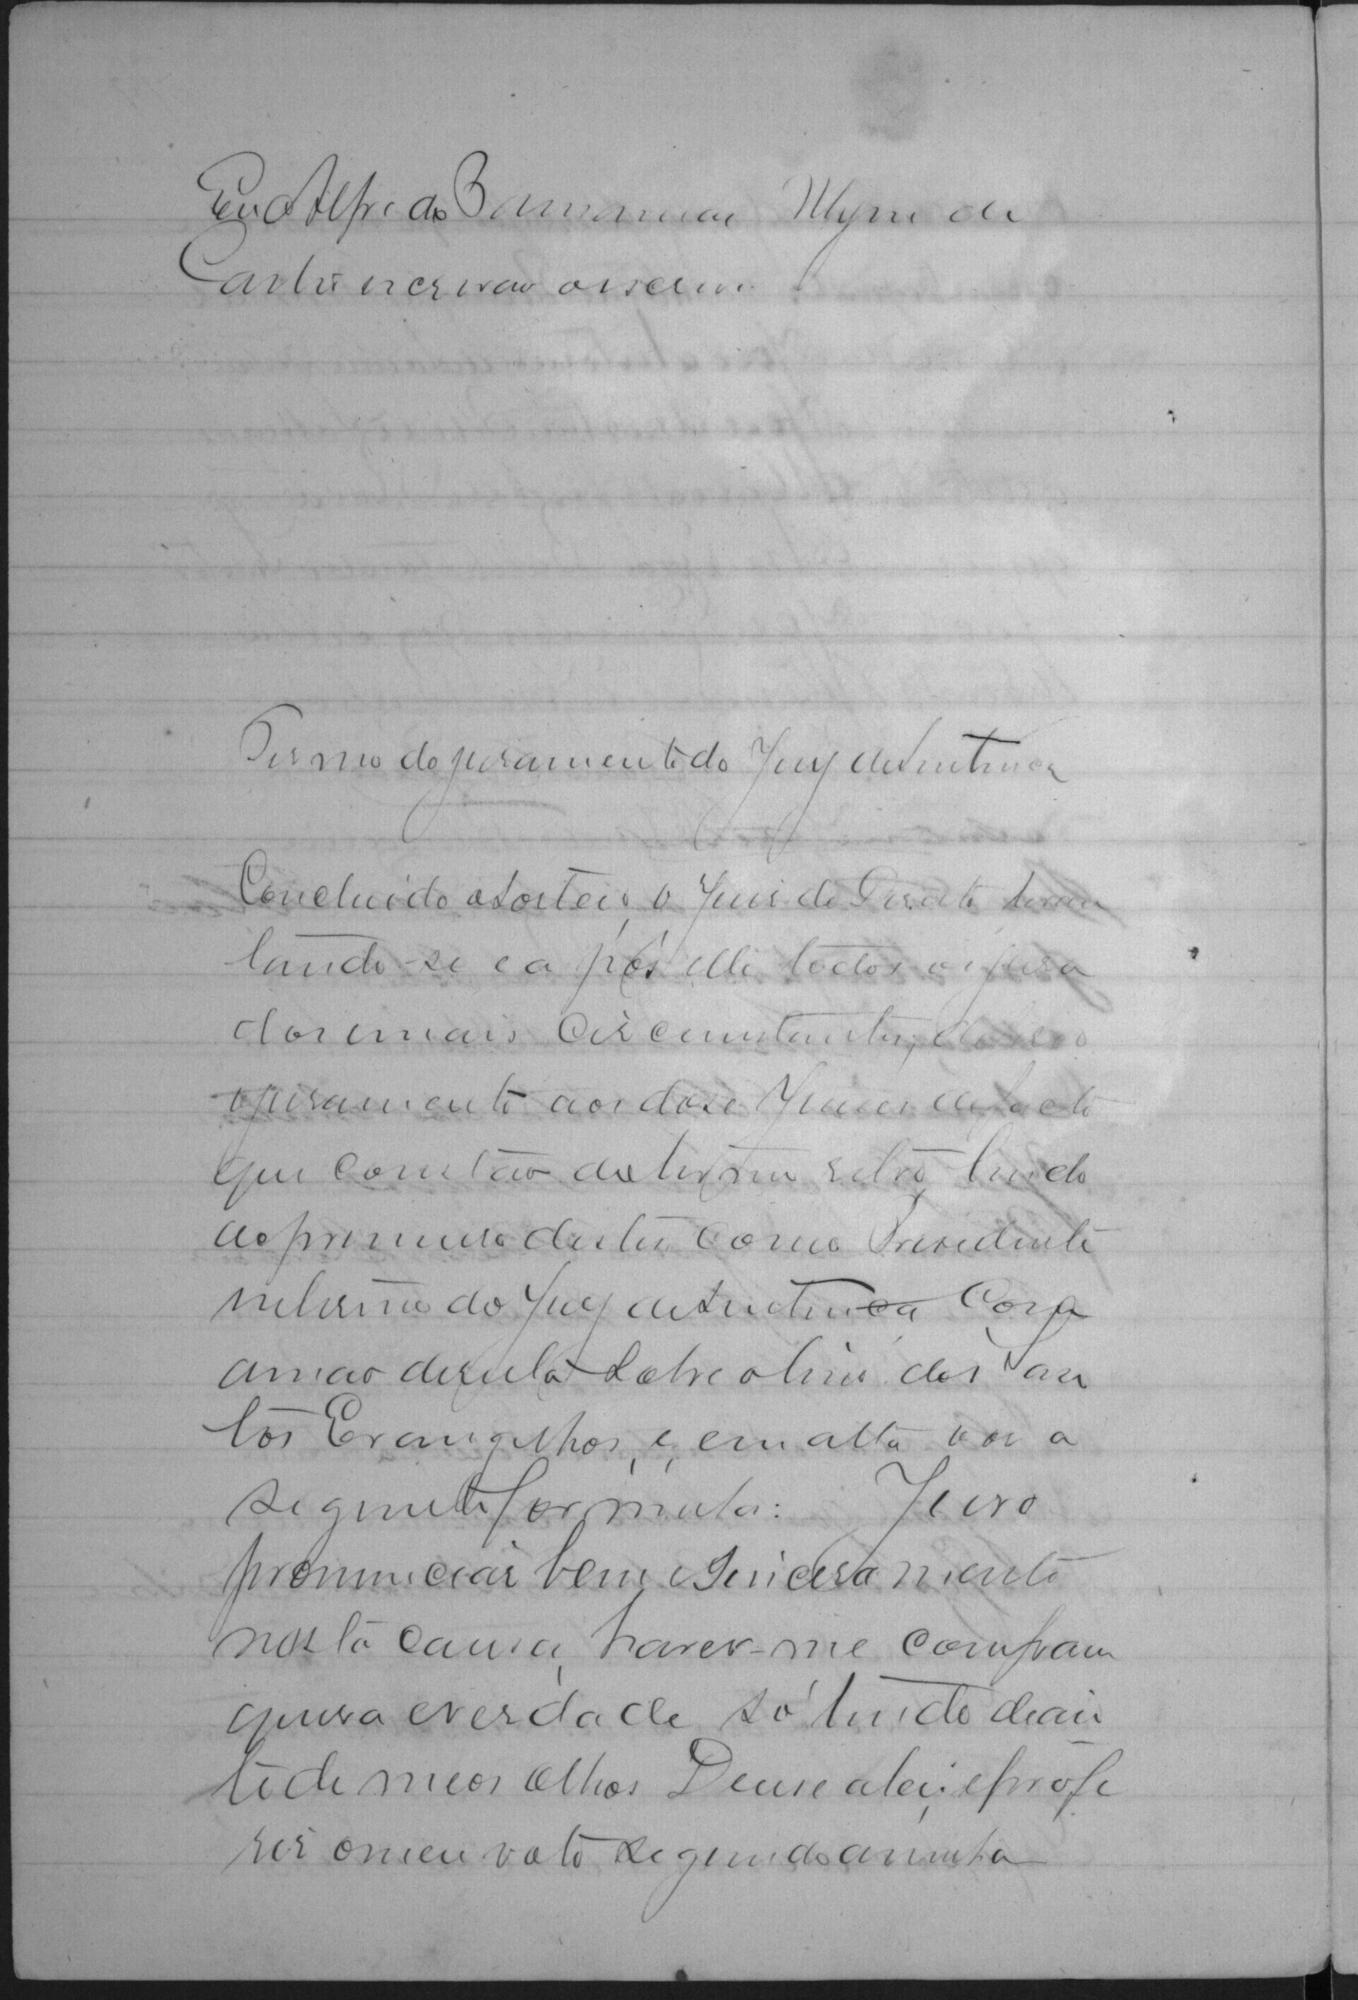 Eu Alfredo
Castro escrivão o escrevi
Termo do juramento do Jury de Sentença
Concluido o sorteio, o Juis de Direito levan
tando-se e a pós elle todos os jura
dos e mais circumstantes,
o juramento aos dose Juises de facto
que constão do termo retro, lendo
ao primeiro destes como Presidente
interino do Jury de Sentença com
a mão direita sobre o livro dos San
tos Evangelhos, e, em alta vos a
seguinte formula: Juro
pronunciar bem e sinceramente
nesta causa, haver-me com fran
quesa e verdade só tendo dian
te de meos olhos Deus e a lei; e profe
rir o meu voto segundo a minha